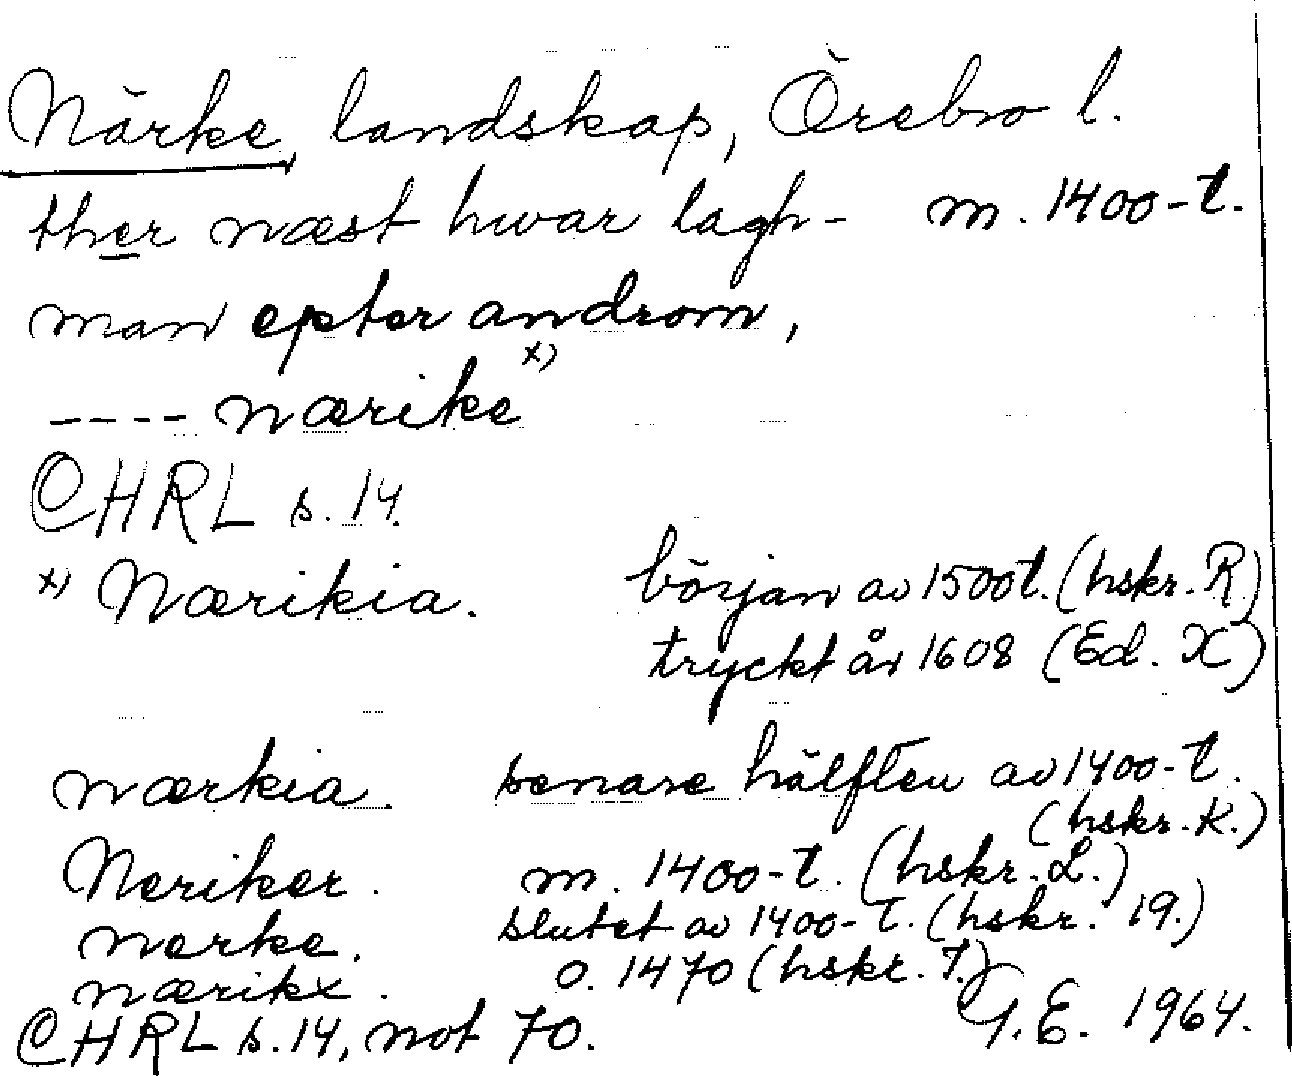 Närke, landskap, Örebro l.
ther næst hwar lagh- m. 1400-t.
man epter androm,
---- nærike x)
CHRL s. 14.
x) Nærikia. början av 1500t. (hskr. R)
tryckt år 1608 (Ed. X)
nærkia. senare hälften av 1400-t.
(hskr. K.)
Neriker. m. 1400-t. (hskr. L.)
nerke. slutet av 1400-t. (hskr. 19.)
nærikx. o. 1470 (hskr. 7.)
CHRL s. 14, not 70. G.E. 1964.